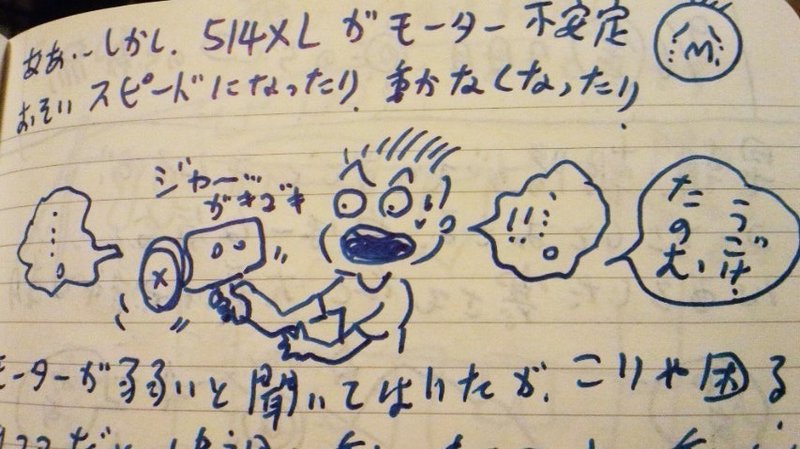 ああ…しかし、514XLがモーター不安定
おそいスピードになったり、動かなくなったり、
ジャー…
ガキゴキ
……。
!!…。
うごけ!
たのむ、
モーターが弱いと聞いてはいたが、こりゃ困る